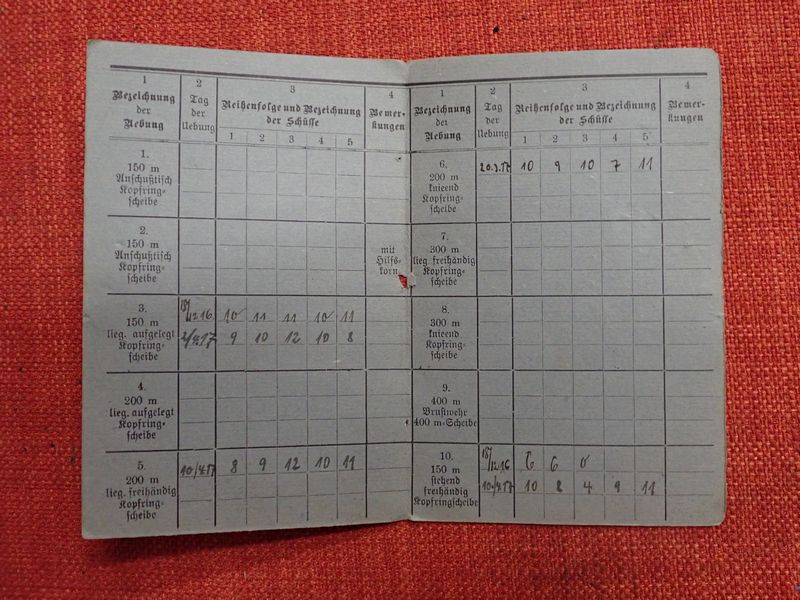 1 2 3 4
Bezeichnung der Uebung
Tag der Uebung
Reihenfolge und Bezeichnung der Schüsse
Bemer-kungen
1 2 3 4 5
1.
150 m
Anschußtisch
Kopfring-
scheibe
2.
150 m
Anschußtisch
Kopfring-
scheibe
mit
Hilfs-
korn
3.
150 m
lieg. aufgelegt
Kopfring-
scheibe
18/12.16. 10 11 11 10 11
9 10 12 10 8
4.
200 m
lieg. aufgelegt
Kopfring-
scheibe
5.
200 m
lieg. freihändig
Kopfring-
scheibe
8 9 12 10 11
1 2 3 4
Bezeichnung der Uebung
Tag der Uebung
Reihenfolge und Bezeichnung der Schüsse
Bemer-kungen
1 2 3 4 5
6.
200 m
knieend
Kopfring-
scheibe
20.3.17 10 9 10 7 11
7.
300 m
lieg. freihändig
Kopfring-
scheibe
8.
300 m
knieend
Kopfring-
scheibe
9.
400 m
Brustwehr
400 m-Scheibe
10.
150 m
stehend
freihändig
Kopfringscheibe
18/12.16 6 6 0
10 8 4 9 11